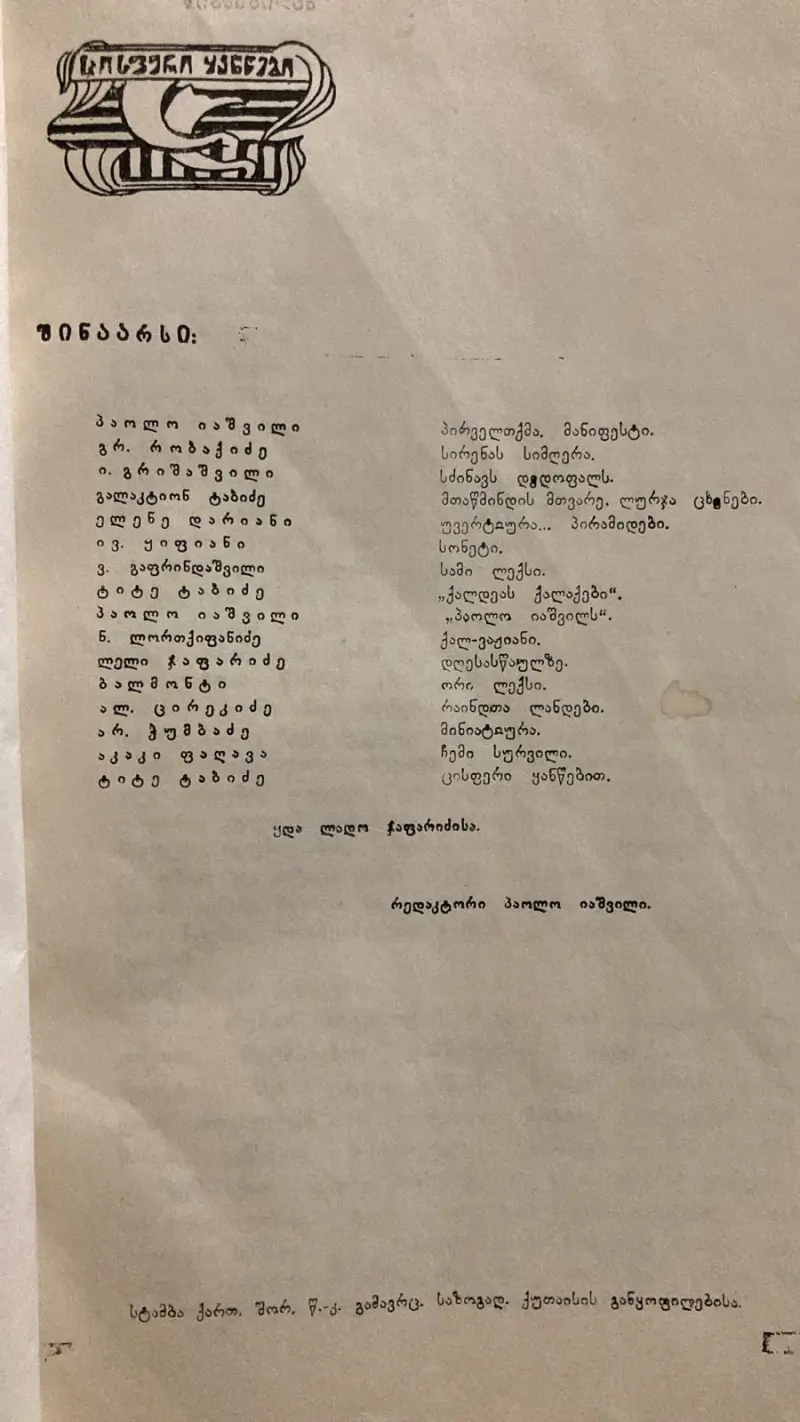 ცისფერი ყანწები
შინაარსი:
პაოლო იაშვილი პირველთქმა. მანიფესტი.
გრ. რობაქიძე სირენას სიმღერა.
ი. გრიშაშვილი სძინავს დედოფალს.
გალაკტიონ ტაბიძე მთაწმინდის მთვარე, ლურჯა ცხენები.
ელენე დარიანი უვერტიურა... პირამიდები.
ივ. ყიფიანი სონეტი.
ვ. გაფრინდაშვილი სამი ლექსი.
ტიტე ტაბიძე „ქალდეას ქალაქები“.
პაოლო იაშვილი „პაოლო იაშვილს“.
ნ. ლორთქიფანიძე ქალ-ვაჟიანი.
ლელი ჯაფარიძე დღესასწაულზე.
ბალმონტი ორი ლექსი.
ალ. ცირეკიძე რაინდთა ლანდები.
არ. ჭუმბაძე მინიატიურა.
აკაკი ფაღავა ჩემი სურვილი.
ტიტე ტაბიძე ცისფერი ყანწებით.
ყდა ლადო ჯაფარიძისა.
რედაკტორი პაოლო იაშვილი.
სტამბა ქართ. შორ. წ.-კ. გამავრც. საზოგად. ქუთაისის განყოფილებისა.